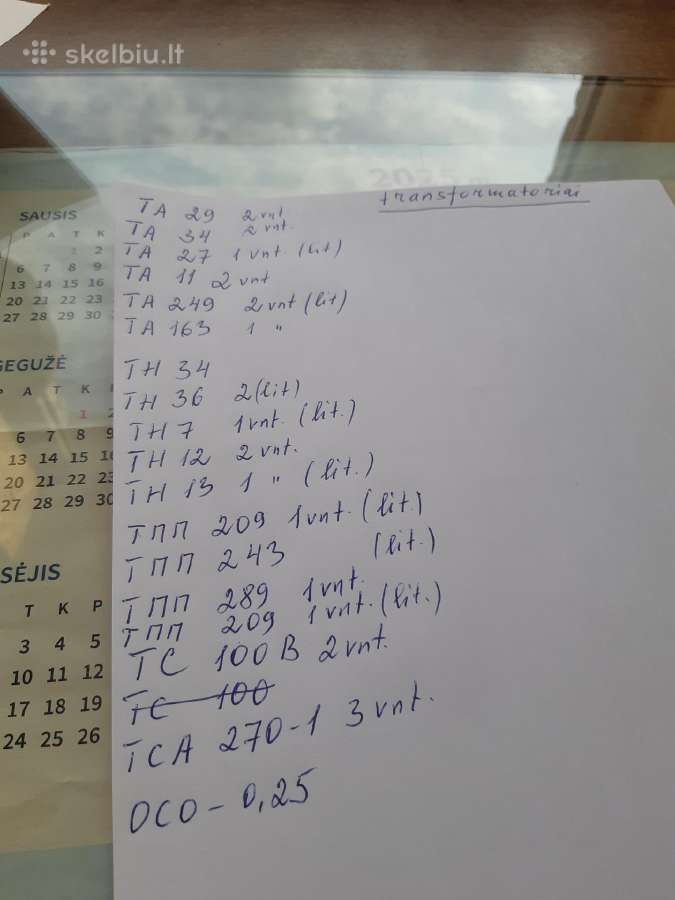 skelbiu.lt
2025
transformatoriai
ТА 29 2 vnt
ТА 34 2 vnt.
ТА 27 1 vnt. (lit)
ТА 11 2 vnt
ТА 249 2 vnt (lit)
ТА 163 1 "
ТН 34
ТН 36 2 (lit)
ТН 7 1 vnt. (lit.)
ТН 12 2 vnt.
ТН 13 1 " (lit.)
ТПП 209 1 vnt. (lit)
ТПП 243 (lit.)
ТПП 289 1 vnt.
ТПП 209 1 vnt. (lit.)
ТС 100В 2 vnt.
ТС 100
ТСА 270-1 3 vnt.
ОСО - 0,25
SAUSIS
P A T K
1 2
6 7 8 9
13 14 15 16
20 21 22 23
27 28 29 30
GEGUŽĖ
P A T K
1 2
6 7 8 9
13 14 15 16
20 21 22 23
27 28 29 30
SĖJIS
T K P
3 4 5
10 11 12
17 18 19
24 25 26